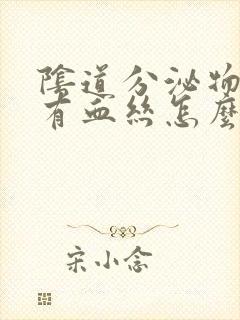 陰道分泌物
有血絲怎麼
宋小念